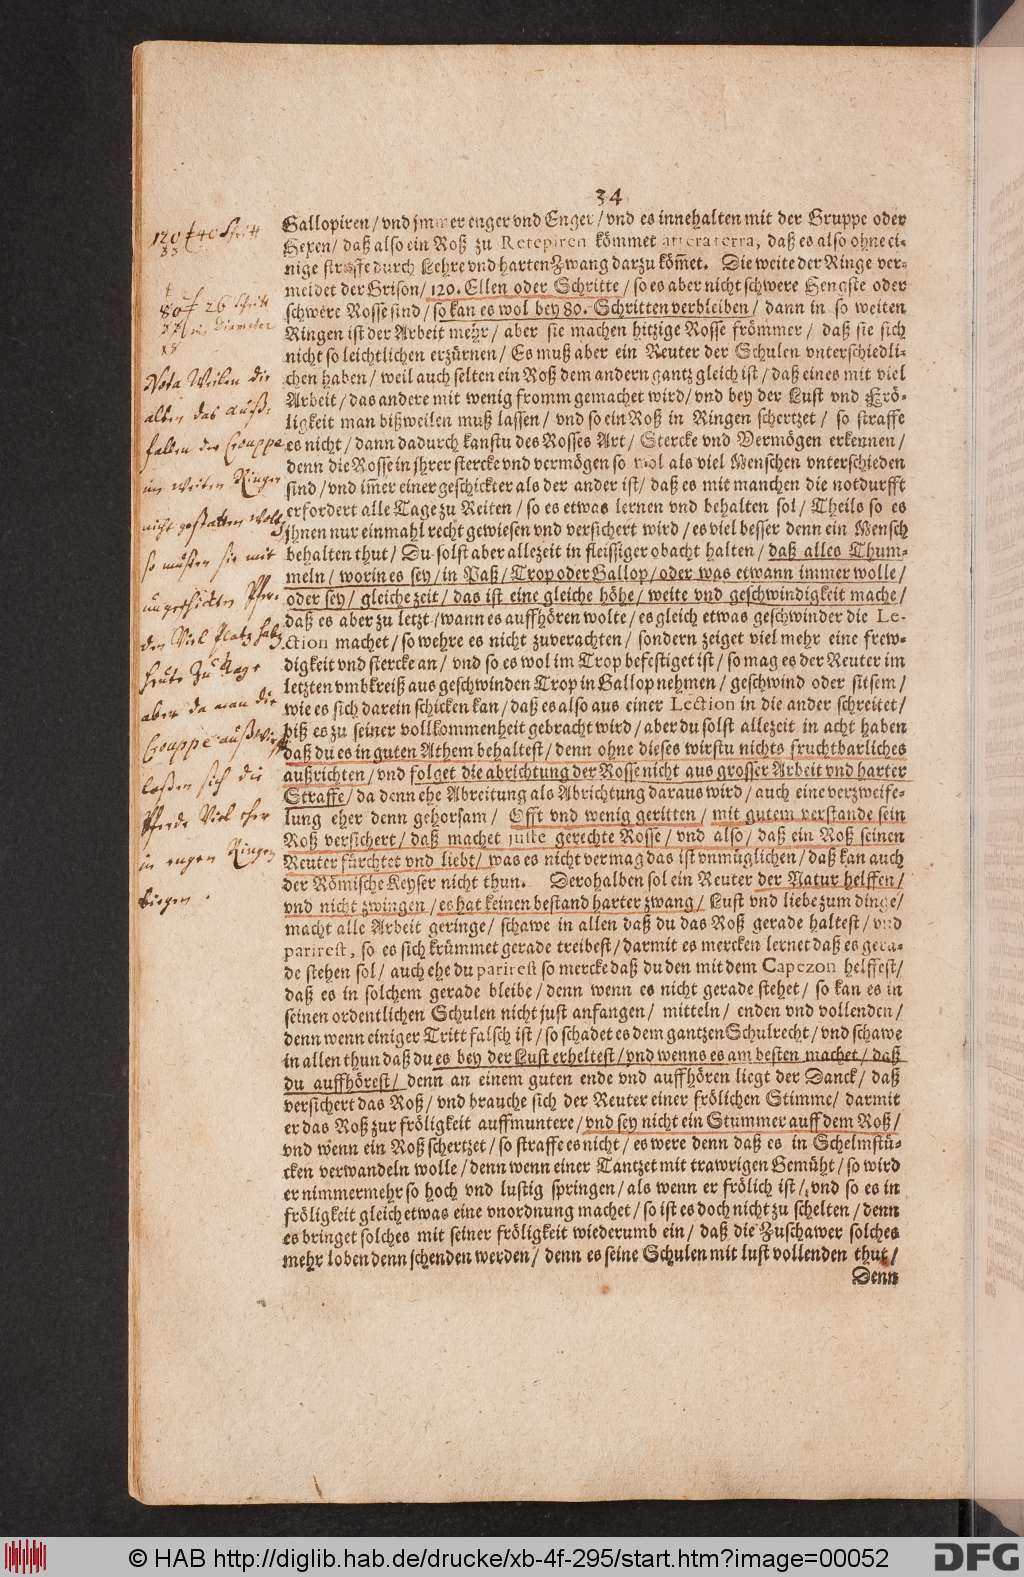 34
Gallopiren/ vnd jmmer enger vnd Enger/ vnd es innehalten mit der Gruppe oder
Hexen/ daß also ein Roß zu Retepiren kömmet atteraterra, daß es also ohne ei-
nige straffe durch Lehre vnd harten Zwang darzu köm̃et. Die weite der Ringe ver-
meldet der Grison/ 120. Ellen oder Schritte/ so es aber nicht schwere Hengste oder
schwere Rosse sind/ so kan es wol bey 80. Schritten verbleiben/ dann in so weiten
Ringen ist der Arbeit mehr/ aber sie machen hitzige Rosse frömmer/ daß sie sich
nicht so leichtlichen erzürnen/ Es muß aber ein Reuter der Schulen vnterschiedli-
chen haben/ weil auch selten ein Roß dem andern gantz gleich ist/ daß eines mit viel
Arbeit/ das andere mit wenig fromm gemachet wird/ vnd bey der Lust vnd Frö-
ligkeit man bißweilen muß lassen/ vnd so ein Roß in Ringen schertzet/ so straffe
es nicht/ dann dadurch kanstu des Rosses Art/ Stercke vnd Vermögen erkennen/
denn die Rosse in jhrer stercke vnd vermögen so wol als viel Menschen vnterschieden
sind/ vnd im̃er einer geschickter als der ander ist/ daß es mit manchen die notdurfft
erfordert alle Tage zu Reiten/ so es etwas lernen vnd behalten sol/ Theils so es
jhnen nur einmahl recht gewiesen vnd versichert wird/ es viel besser denn ein Mensch
behalten thut/ Du solst aber allezeit in fleissiger obacht halten/ daß alles Thum-
meln/ worin es sey/ in Paß/ Trop oder Gallop/ oder was etwann immer wolle/
oder sey/ gleiche zeit/ das ist eine gleiche höhe/ weite vnd geschwindigkeit mache/
daß es aber zu letzt/ wann es auffhören wolte/ es gleich etwas geschwinder die Le-
ction machet/ so wehre es nicht zuverachten/ sondern zeiget viel mehr eine frew-
digkeit vnd stercke an/ vnd so es wol im Trop befestiget ist/ so mag es der Reuter im
letzten vmbkreiß aus geschwinden Trop in Gallop nehmen/ geschwind oder sitsem/
wie es sich darein schicken kan/ daß es also aus einer Lection in die ander schreitet/
biß es zu seiner vollkommenheit gebracht wird/ aber du solst allezeit in acht haben
daß du es in guten Athem behaltest/ denn ohne dieses wirstu nichts fruchtbarliches
außrichten/ vnd folget die abrichtung der Rosse nicht aus grosser Arbeit vnd harter
Straffe/ da denn ehe Abreitung als Abrichtung daraus wird/ auch eine verzweife-
lung eher denn gehorsam/ Offt vnd wenig geritten/ mit gutem verstande sein
Roß versichert/ daß machet juste gerechte Rosse/ vnd also/ daß ein Roß seinen
Reuter fürchtet vnd liebt/ was es nicht vermag das ist vnmüglichen/ daß kan auch
der Römische Keyser nicht thun. Derohalben sol ein Reuter der Natur helffen/
vnd nicht zwingen/ es hat keinen bestand harter zwang/ Lust vnd liebe zum dinge/
macht alle Arbeit geringe/ schawe in allen daß du das Roß gerade haltest/ vnd
parirest, so es sich krümmet gerade treibest/ darmit es mercken lernet daß es gera-
de stehen sol/ auch ehe du parirest so mercke daß du den mit dem Capezon helffest/
daß es in solchem gerade bleibe/ denn wenn es nicht gerade stehet/ so kan es in
seinen ordentlichen Schulen nicht just anfangen/ mitteln/ enden vnd vollenden/
denn wenn einiger Tritt falsch ist/ so schadet es dem gantzen Schulrecht/ vnd schawe
in allen thun daß du es bey der Lust erheltest/ vnd wenns es am besten machet/ daß
du auffhörest/ denn an einem guten ende vnd auffhören liegt der Danck/ daß
versichert das Roß/ vnd brauche sich der Reuter einer frölichen Stimme/ darmit
er das Roß zur fröligkeit auffmuntere/ vnd sey nicht ein Stummer auff dem Roß/
vnd wenn ein Roß schertzet/ so straffe es nicht/ es were denn daß es in Schelmstü-
cken verwandeln wolle/ denn wenn einer Tantzet mit trawrigen Gemüht/ so wird
er nimmermehr so hoch vnd lustig springen/ als wenn er frölich ist/ vnd so es in
fröligkeit gleich etwas eine vnordnung machet/ so ist es doch nicht zu schelten/ denn
es bringet solches mit seiner fröligkeit wiederumb ein/ daß die Zuschawer solches
mehr loben denn schenden werden/ denn es seine Schulen mit lust vollenden thut/
Denn
120 40 Schritt
80 26 Schritt
Diameter
Nota Weilen die
alten das auß-
fallen der Crouppe
im weiten Ringen
nicht gestatten wolt
so musten sie mit
ungeschickten Pfer-
den Viel Platz hab
heute Zu Tage
aber da man die
Crouppe
laßen sich die
Pferde Viel eher
in engen Ringen
biegen.
© HAB http://diglib.hab.de/drucke/xb-4f-295/start.htm?image=00052
DFG